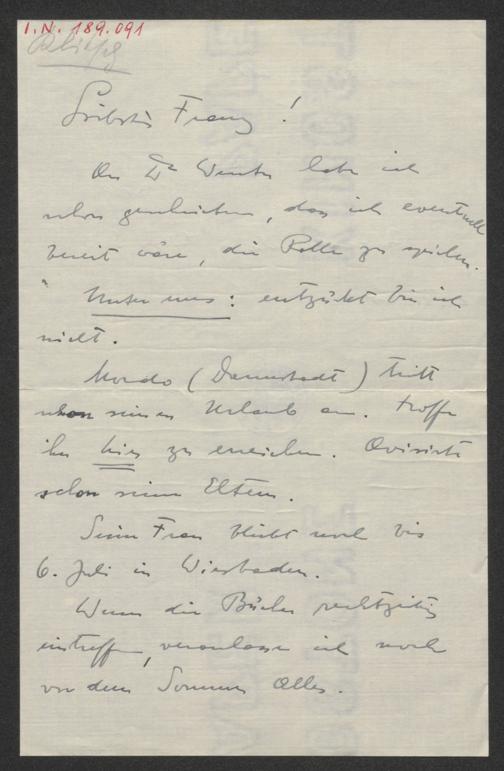 I.N. 189.091
Liebster Franz!
An Dr Winter habe ich
schon geschrieben, dass ich eventuell
bereit wäre, die Rolle zu spielen.
Unter uns: entzückt bin ich
nicht.
Mordo (Darmstadt) tritt
schon seinen Urlaub an. Hoffe
ihn hier zu erreichen. Avisirte
schon seine Eltern.
Seine Frau bleibt noch bis
6. Juli in Wiesbaden.
Wenn die Bücher rechtzeitig
eintreffen, veranlasse ich noch
vor dem Sommer Alles.